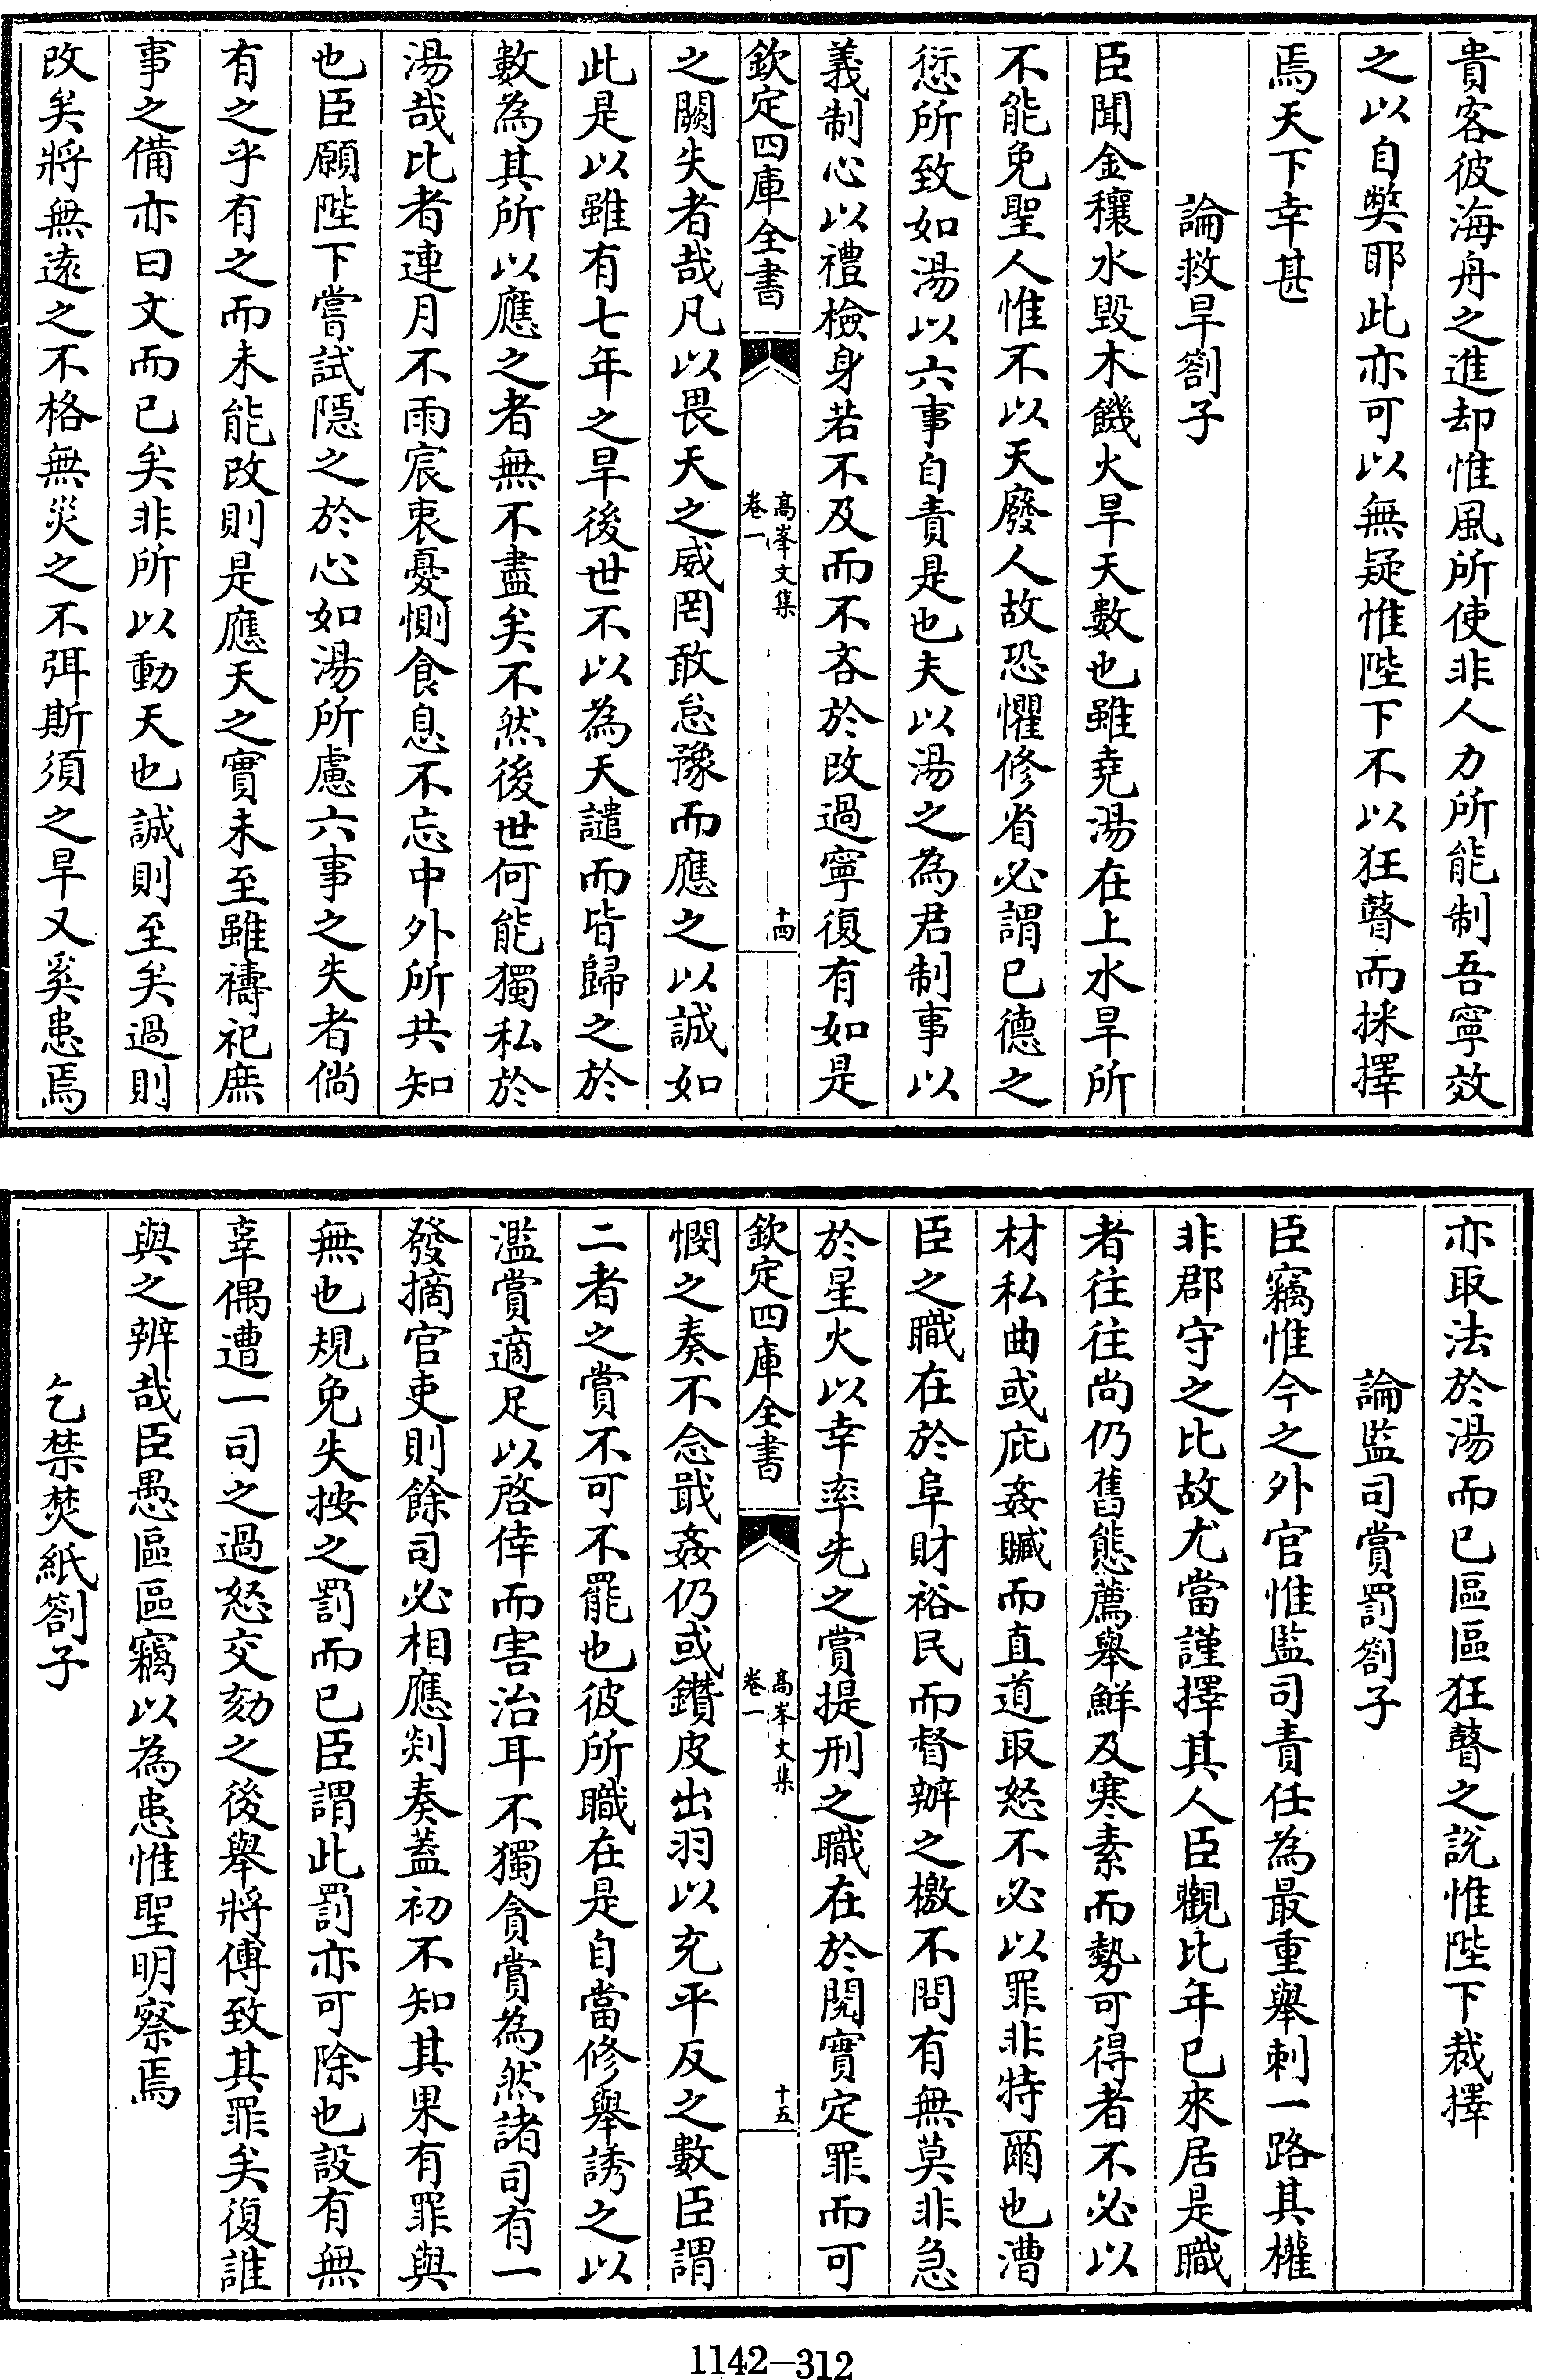 貴客彼海舟之進却惟風所使非人力所能制吾寧效
之以自獘耶此亦可以無疑惟陛下不以狂瞽而採擇
焉天下幸甚
論救旱劄子
臣聞金穰水毁木饑火旱天數也雖堯湯在上水旱所
不能免聖人惟不以天廢人故恐懼修省必謂已德之
愆所致如湯以六事自責是也夫以湯之為君制事以
義制心以禮檢身若不及而不吝於改過寧復有如是
欽定四庫全書
高峯文集
卷一
十四
之闕失者哉凡以畏天之威罔敢怠豫而應之以誠如
此是以雖有七年之旱後世不以為天譴而皆歸之於
數為其所以應之者無不盡矣不然後世何能獨私於
湯哉比者連月不雨宸衷憂惻食息不忘中外所共知
也臣願陛下嘗試隱之於心如湯所慮六事之失者倘
有之乎有之而未能改則是應天之實未至雖禱祀庶
事之備亦曰文而已矣非所以動天也誠則至矣過則
改矣將無遠之不格無災之不弭斯須之旱又奚患焉
亦取法於湯而已區區狂瞽之説惟陛下裁擇
論監司賞罰劄子
臣竊惟今之外官惟監司責任為最重舉刺一路其權
非郡守之比故尤當謹擇其人臣觀比年已來居是職
者往往尚仍舊態薦舉鮮及寒素而勢可得者不必以
材私曲或庇姦贓而直道取怒不必以罪非特爾也漕
臣之職在於阜財裕民而督辦之檄不問有無莫非急
於星火以幸率先之賞提刑之職在於閱實定罪而可
欽定四庫全書
高峯文集
卷一
十五
憫之奏不念戢姦仍或鑽皮出羽以充平反之數臣謂
二者之賞不可不罷也彼所職在是自當修舉誘之以
濫賞適足以啓倖而害治耳不獨貪賞為然諸司有一
發摘官吏則餘司必相應剡奏蓋初不知其果有罪與
無也規免失按之罰而已臣謂此罰亦可除也設有無
辜偶遭一司之過怒交劾之後舉將傅致其罪矣復誰
與之辨哉臣愚區區竊以為患惟聖明察焉
乞禁焚紙劄子
1142-312